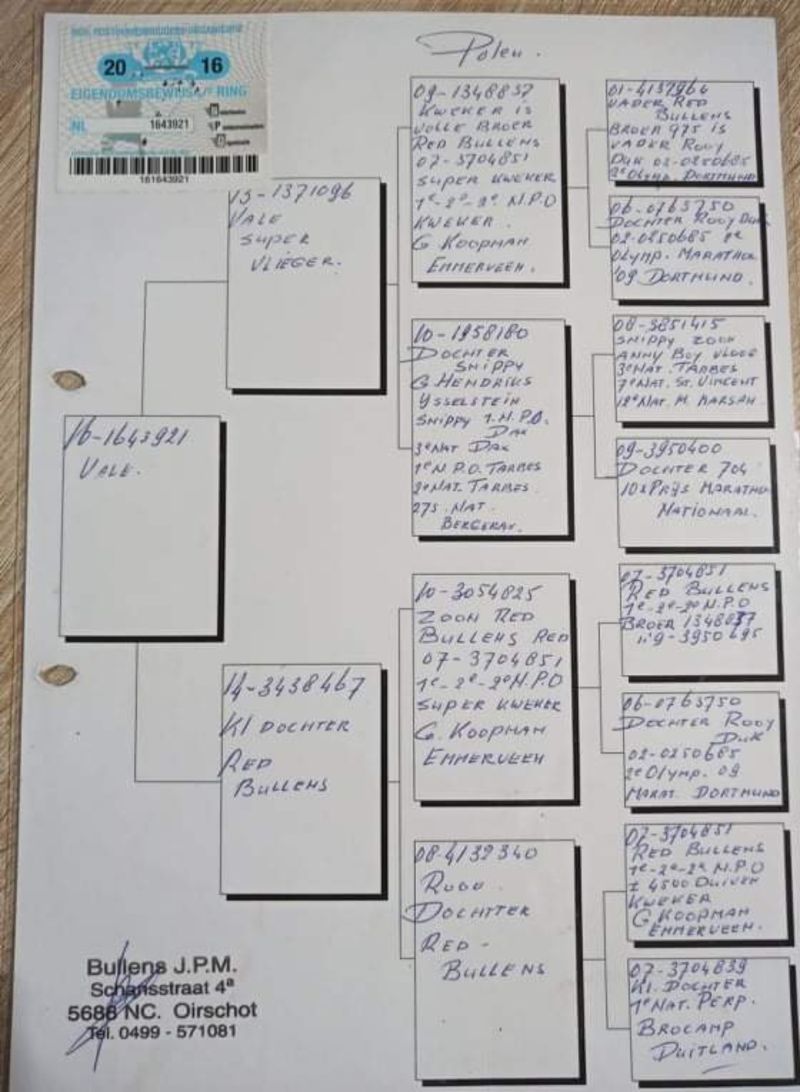 Polen.
NED. POSTDUIVENHOUDERS ORGANISATIE
20 16
EIGENDOMSBEWIJS RING
NL 1643921
161643921
16-1643921
VALE.
13-1371096
VALE
SUPER
VLIEGER.
14-3438467
KL DOCHTER
RED
BULLENS
09-1348837
KWEKER IS
VOLLE BROER
RED BULLENS
07-3704851
SUPER KWEKER
1e-2e-2e N.P.O
KWEKER.
G. KOOPMAN
EMMERVEEN.
10-1958180
DOCHTER
SNIPPY
G. HENDRIKS
YSSELSTEIN
SNIPPY 1. N.P.O.
DAX
3e NAT DAX
1e N.P.O. TARBES
2e NAT. TARBES
27s. NAT.
BERGERAC.
10-3054825
ZOON RED
BULLENS RED
07-3704851
1e-2e-2e N.P.O
SUPER KWEKER
G. KOOPMAN
EMMERVEEN
08-4132340
RODE
DOCHTER
RED-
BULLENS
01-4137966
VADER RED
BULLENS
BROER 975 IS
VADER ROOY
DUK 02-0250685
2e OLYMP. DORTMUND
06-0763750
DOCHTER ROOY DUK
02-0250685 2e
OLYMP. MARATHON
'09 DORTMUND.
08-3851415
SNIPPY ZOON
ANNY BOY VLOOG
3e NAT. TARBES
7e NAT. ST. VINCENT
12e NAT. M. MARSAN.
09-3950400
DOCHTER 704
10x PRYS MARATHON
NATIONAAL.
07-3704851
RED BULLENS
1e-2e-2e N.P.O
BROER 1348837
09-3950695
06-0763750
DOCHTER ROOY
DUK
02-0250685
2e OLYMP. 09
MARAT. DORTMUND
07-3704851
RED BULLENS
1e-2e-2e N.P.O
± 4500 DUIVEN
KWEKER
G. KOOPMAN
EMMERVEEN.
07-3704839
KL. DOCHTER
1e NAT. PERP.
BROCAMP
DUITLAND.
Bullens J.P.M.
Schansstraat 4a
5688 NC. Oirschot
Tel. 0499 - 571081